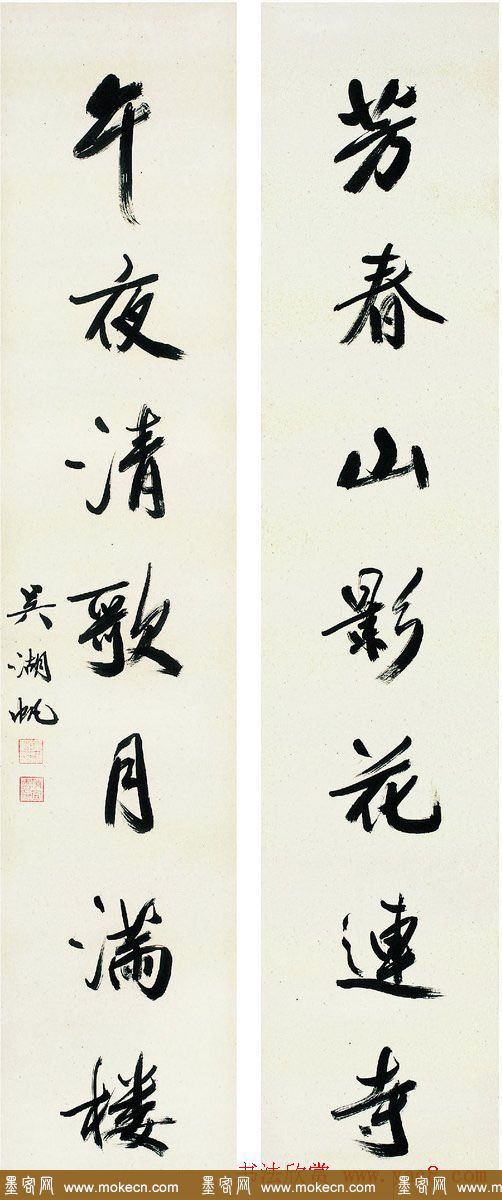 芳春山影花連寺
午夜清歌月满楼
吴湖帆
书法欣赏
墨客网 www.mokecn.com 墨客网 www.mokecn.com 墨客网 www.mokecn.com